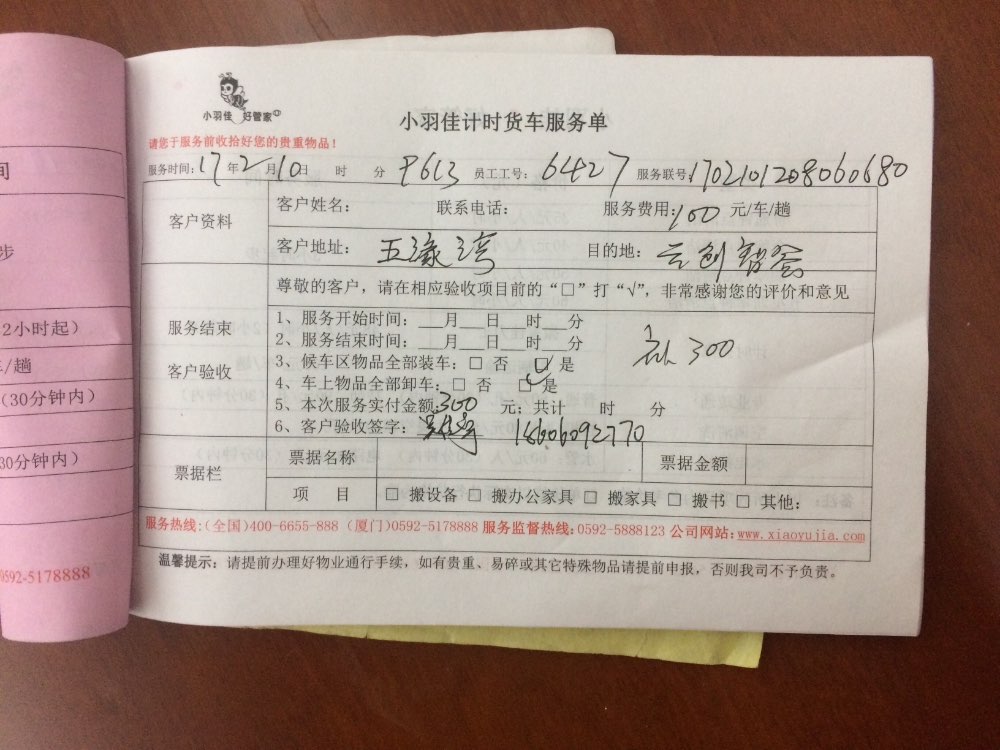 小羽佳 好管家
小羽佳计时货车服务单
请您于服务前收拾好您的贵重物品！
服务时间：17年2月10日 时 分 P613 员工工号：61427 服务联号：1702101208060680
客户资料
客户姓名： 联系电话： 服务费用：100 元/车/趟
客户地址：五缘湾 目的地：云创智谷
服务结束
客户验收
尊敬的客户，请在相应验收项目前的“□”打“√”，非常感谢您的评价和意见
1、服务开始时间：___月___日___时___分
2、服务结束时间：___月___日___时___分
3、候车区物品全部装车：□ 否 □ 是
4、车上物品全部卸车：□ 否 □ 是
5、本次服务实付金额：300 元；共计 时 分
6、客户验收签字： 18606092770
300
票据栏
票据名称 票据金额
项 目 □ 搬设备 □ 搬办公家具 □ 搬家具 □ 搬书 □ 其他：
服务热线：(全国)400-6655-888 (厦门)0592-5178888 服务监督热线：0592-5888123 公司网站：www.xiaoyujia.com
温馨提示：请提前办理好物业通行手续，如有贵重、易碎或其它特殊物品请提前申报，否则我司不予负责。
间
步
2小时起）
/趟
（30分钟内）
30分钟内）
0592-5178888